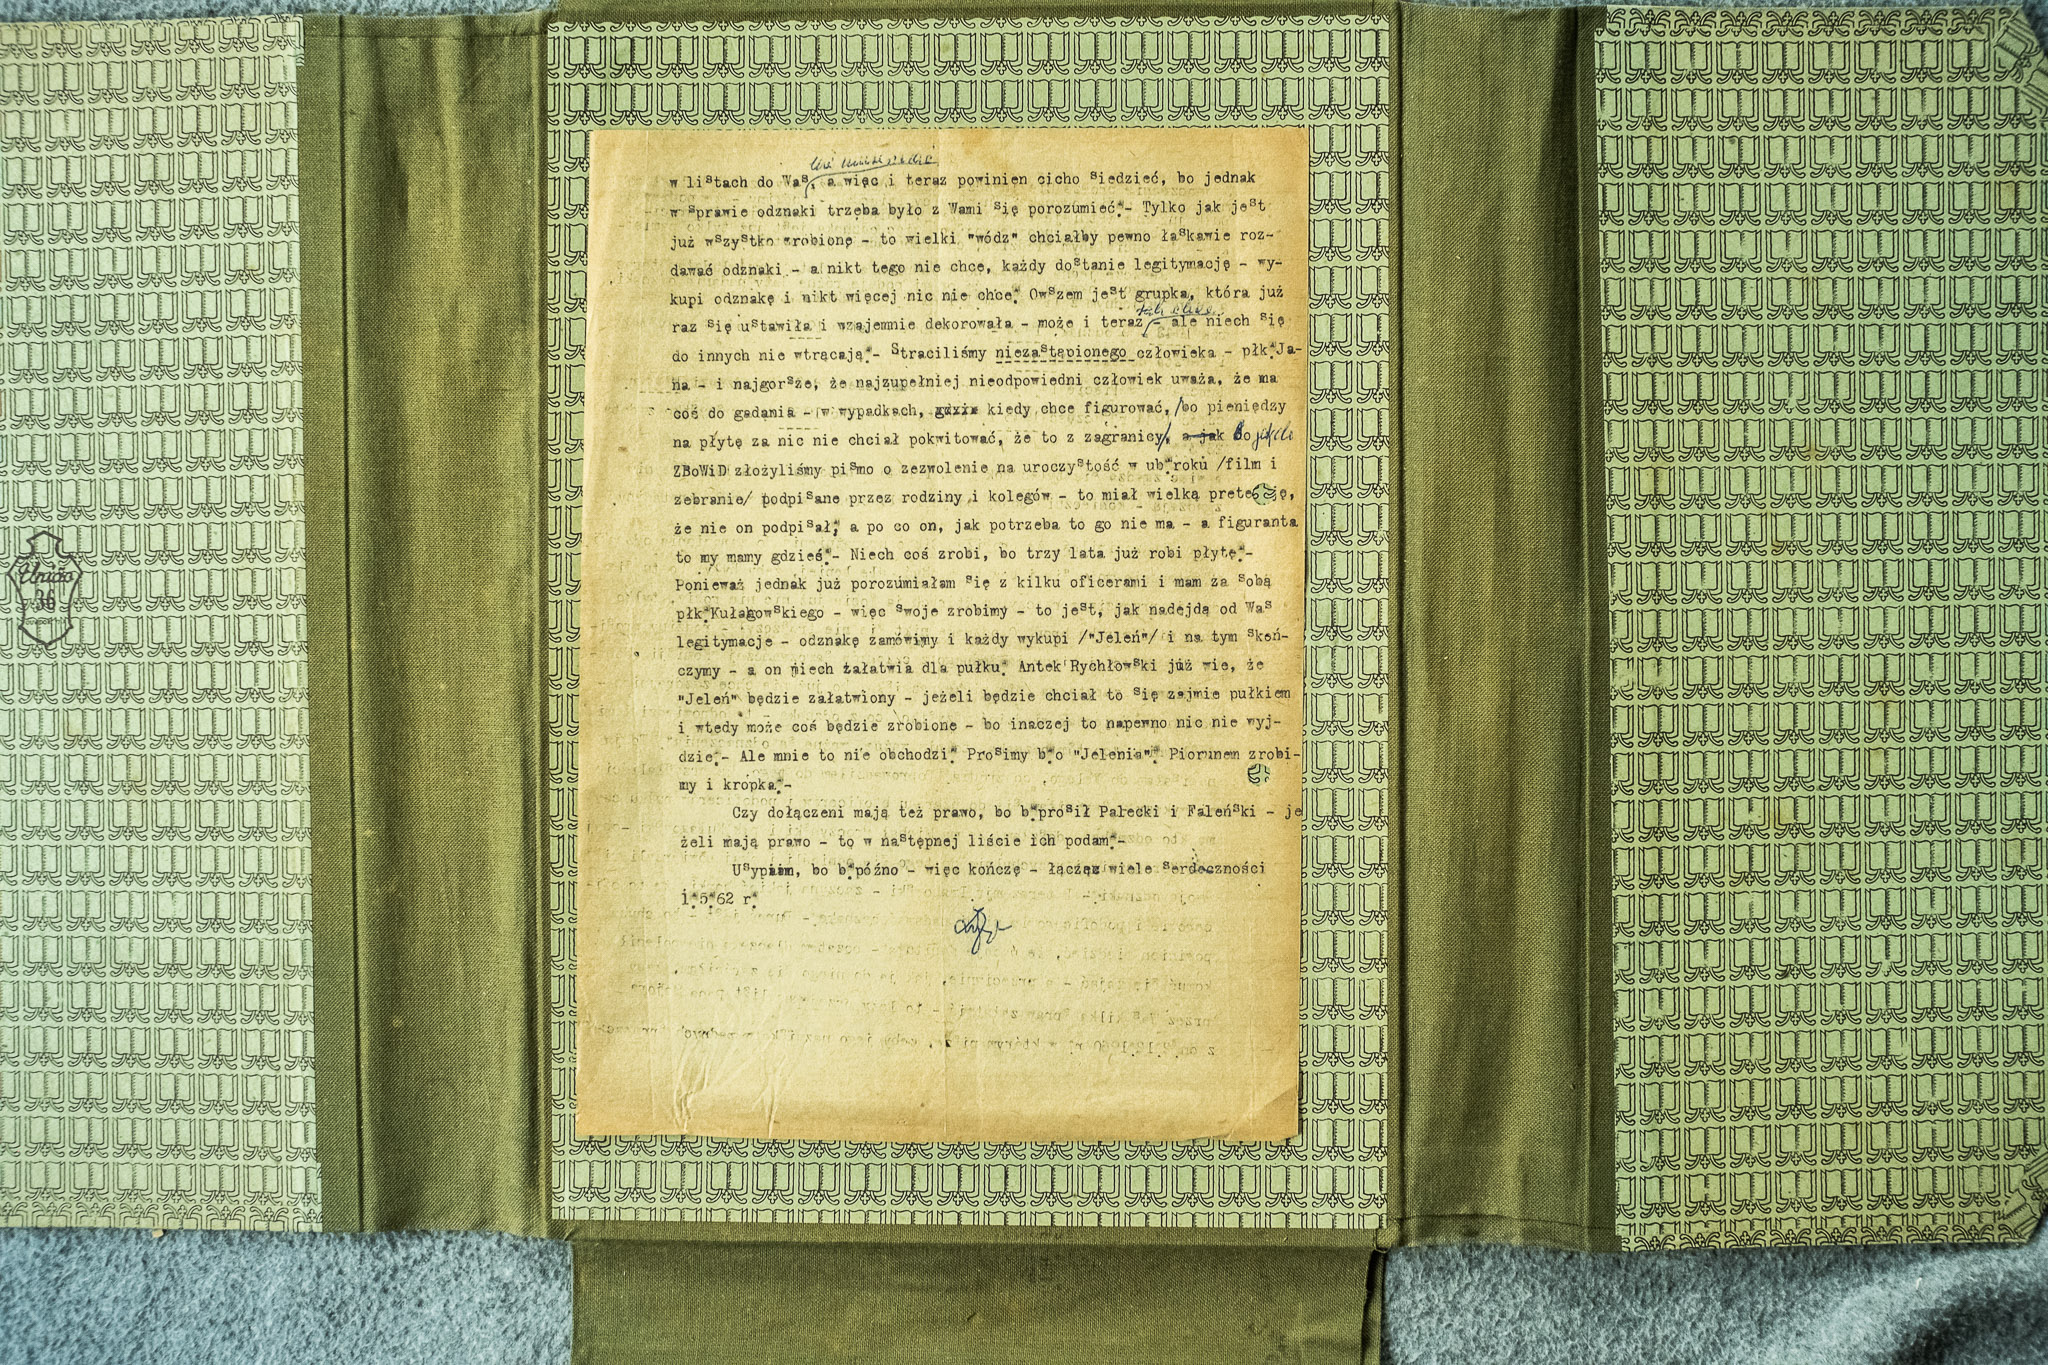 w listach do Was, a więc i teraz powinien cicho siedzieć, bo jednak
w sprawie odznaki trzeba było z Wami się porozumieć.- Tylko jak jest
już wszystko zrobione - to wielki "wódz" chciałby pewno łaskawie roz-
dawać odznaki - a nikt tego nie chce, każdy dostanie legitymację - wy-
kupi odznakę i nikt więcej nic nie chce. Owszem jest grupka, która już
raz się ustawiła i wzajemnie dekorowała - może i teraz - ale niech się
do innych nie wtrącają.- Straciliśmy niezastąpionego człowieka - płk.Ja-
na - i najgorsze, że najzupełniej nieodpowiedni człowiek uważa, że ma
coś do gadania - w wypadkach, kiedy chce figurować, /bo pieniędzy
na płytę za nic nie chciał pokwitować, że to z zagranicy/, a jak do
ZBoWiD złożyliśmy pismo o zezwolenie na uroczystość w ub.roku /film i
zebranie/ podpisane przez rodziny i kolegów - to miał wielką pretensję,
że nie on podpisał, a po co on, jak potrzeba to go nie ma - a figuranta
to my mamy gdzieś.- Niech coś zrobi, bo trzy lata już robi płytę.-
Ponieważ jednak już porozumiałam się z kilku oficerami i mam za sobą
płk.Kułagowskiego - więc swoje zrobimy - to jest, jak nadejdą od Was
legitymacje - odznakę zamówimy i każdy wykupi /"Jeleń"/ i na tym skoń-
czymy - a on niech załatwia dla pułku. Antek Rychłowski już wie, że
"Jeleń" będzie załatwiony - jeżeli będzie chciał to się zajmie pułkiem
i wtedy może coś będzie zrobione - bo inaczej to napewno nic nie wyj-
dzie.- Ale mnie to nie obchodzi. Prosimy b.o "Jelenia". Piorunem zrobi-
my i kropka.-
Czy dołączeni mają też prawo, bo b.prosił Pałecki i Faleński - je
żeli mają prawo - to w następnej liście ich podam.-
Usypiam, bo b.późno - więc kończę - łączę wiele serdeczności
1.5.62 r.
Unižo
36